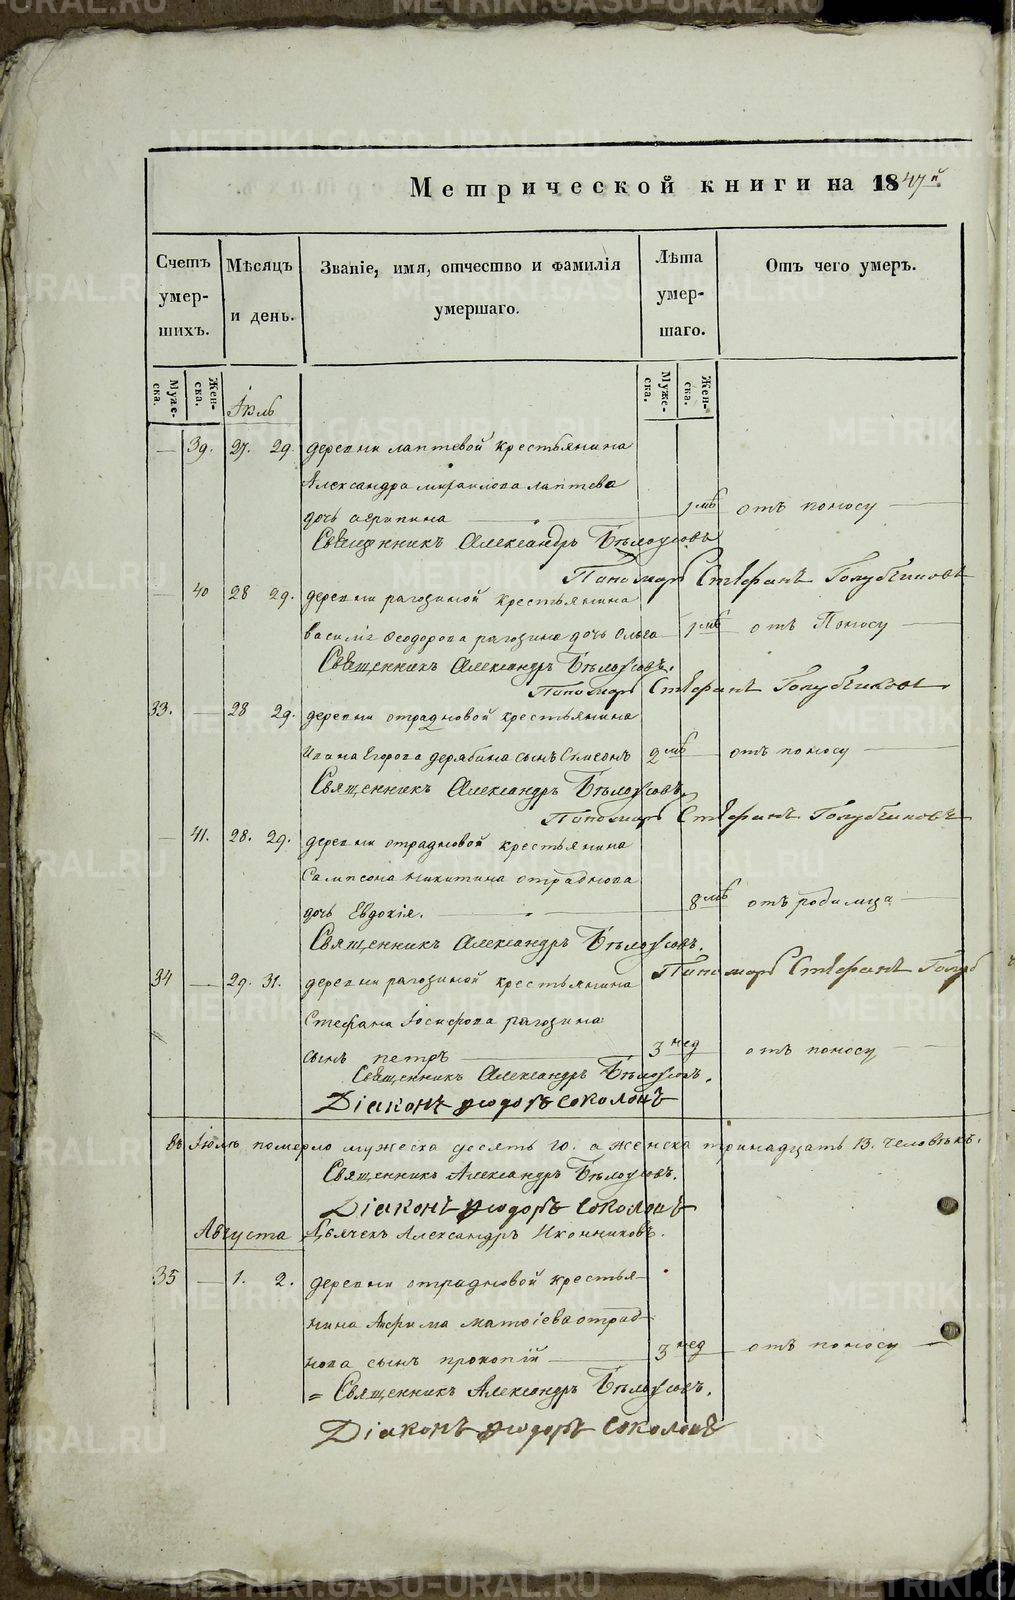 Метрической книги на 1847й
Счетъ умер-шихъ.
Мѣсяцъ и день.
Званіе, имя, отчество и фамилія умершаго.
Лѣта умер-шаго.
Отъ чего умеръ.
Муже-ска.
Жен-ска.
Муже-ска.
Жен-ска.
Іюль
39. 27. 29. деревни лаптевой крестьянина
Александра михаилова лаптева
дочь агрипина 1 мѣ отъ поносу
Священникъ Александръ Бѣлоусовъ
Пономарь Стефанъ Голубчиковъ
40 28 29. деревни рагозиной крестьянина
василія Феодорова рагозина дочь Ольга 1 мѣ отъ Поносу
Священникъ Александръ Бѣлоусовъ.
Пономарь Стефанъ Голубчиковъ
33. 28 29. деревни отрадновой крестьянина
Ивана Егорова дерябина сынъ Симеонъ 2 мѣ отъ поносу
Священникъ Александръ Бѣлоусовъ.
Пономарь Стефанъ Голубчиковъ
41. 28. 29. деревни отрадновой крестьянина
Сампсона Никитина отраднова
дочь Евдокія. 8 мѣ отъ родимца
Священникъ Александръ Бѣлоусовъ.
Пономарь Стефанъ Голуб
34 29. 31. деревни рагозиной крестьянина
Стефана Іосифова рагозина
сынъ петръ 3 нед отъ поносу
Священникъ Александръ Бѣлоусовъ.
Діаконъ Ѳеодоръ Соколовъ
въ Іюлѣ померло мужеска десять 10. а женска тринадцать 13. человѣкъ.
Священникъ Александръ Бѣлоусовъ.
Діаконъ Ѳеодоръ Соколовъ
Августа Дьячекъ Александръ Иконниковъ.
35 1. 2. деревни отрадновой крестья-
нина Матѳіева отрад-
нова сынъ прокопій 3 нед отъ поносу
= Священникъ Александръ Бѣлоусовъ.
Діаконъ Ѳеодоръ Соколовъ
METRIKI.GASO-URAL.RU